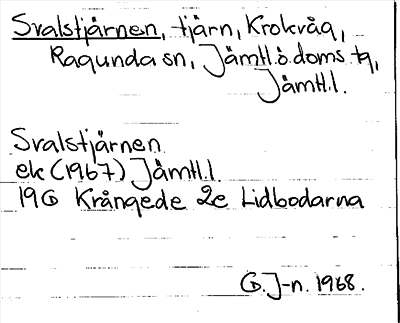 Svalstjärnen, tjärn, Krokvåg,
Ragunda sn, Jämtl.ö.doms.tg,
Jämtl.l.
Svalstjärnen
ek (1967) Jämtl.l.
19G Krångede 2e Lidbodarna
G.J-n. 1968.